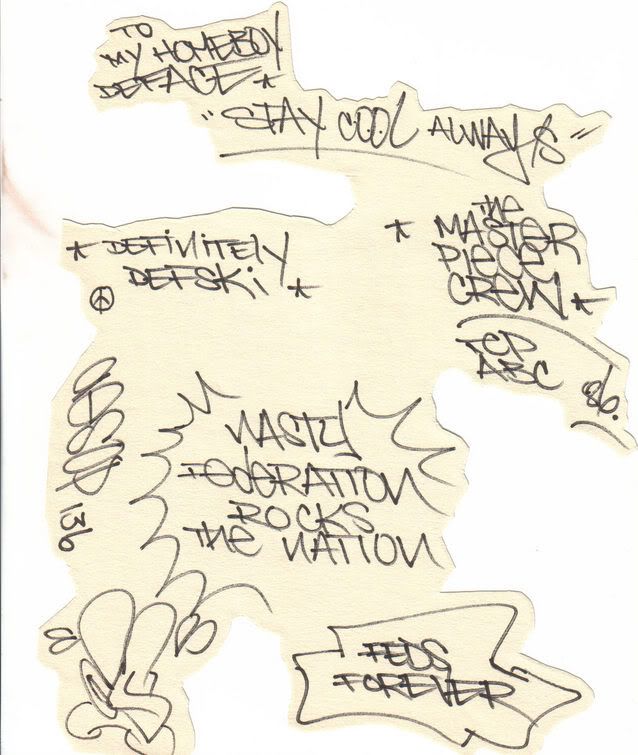 TO
MY HOMEBOY
DEFACE
"STAY COOL ALWAYS"
DEFINITELY
DEFSKI
THE
MASTER
PIECE
CREW
TCP
ABC
86.
NASTY
FEDERATION
ROCKS
THE NATION
136
FEDS
FOREVER